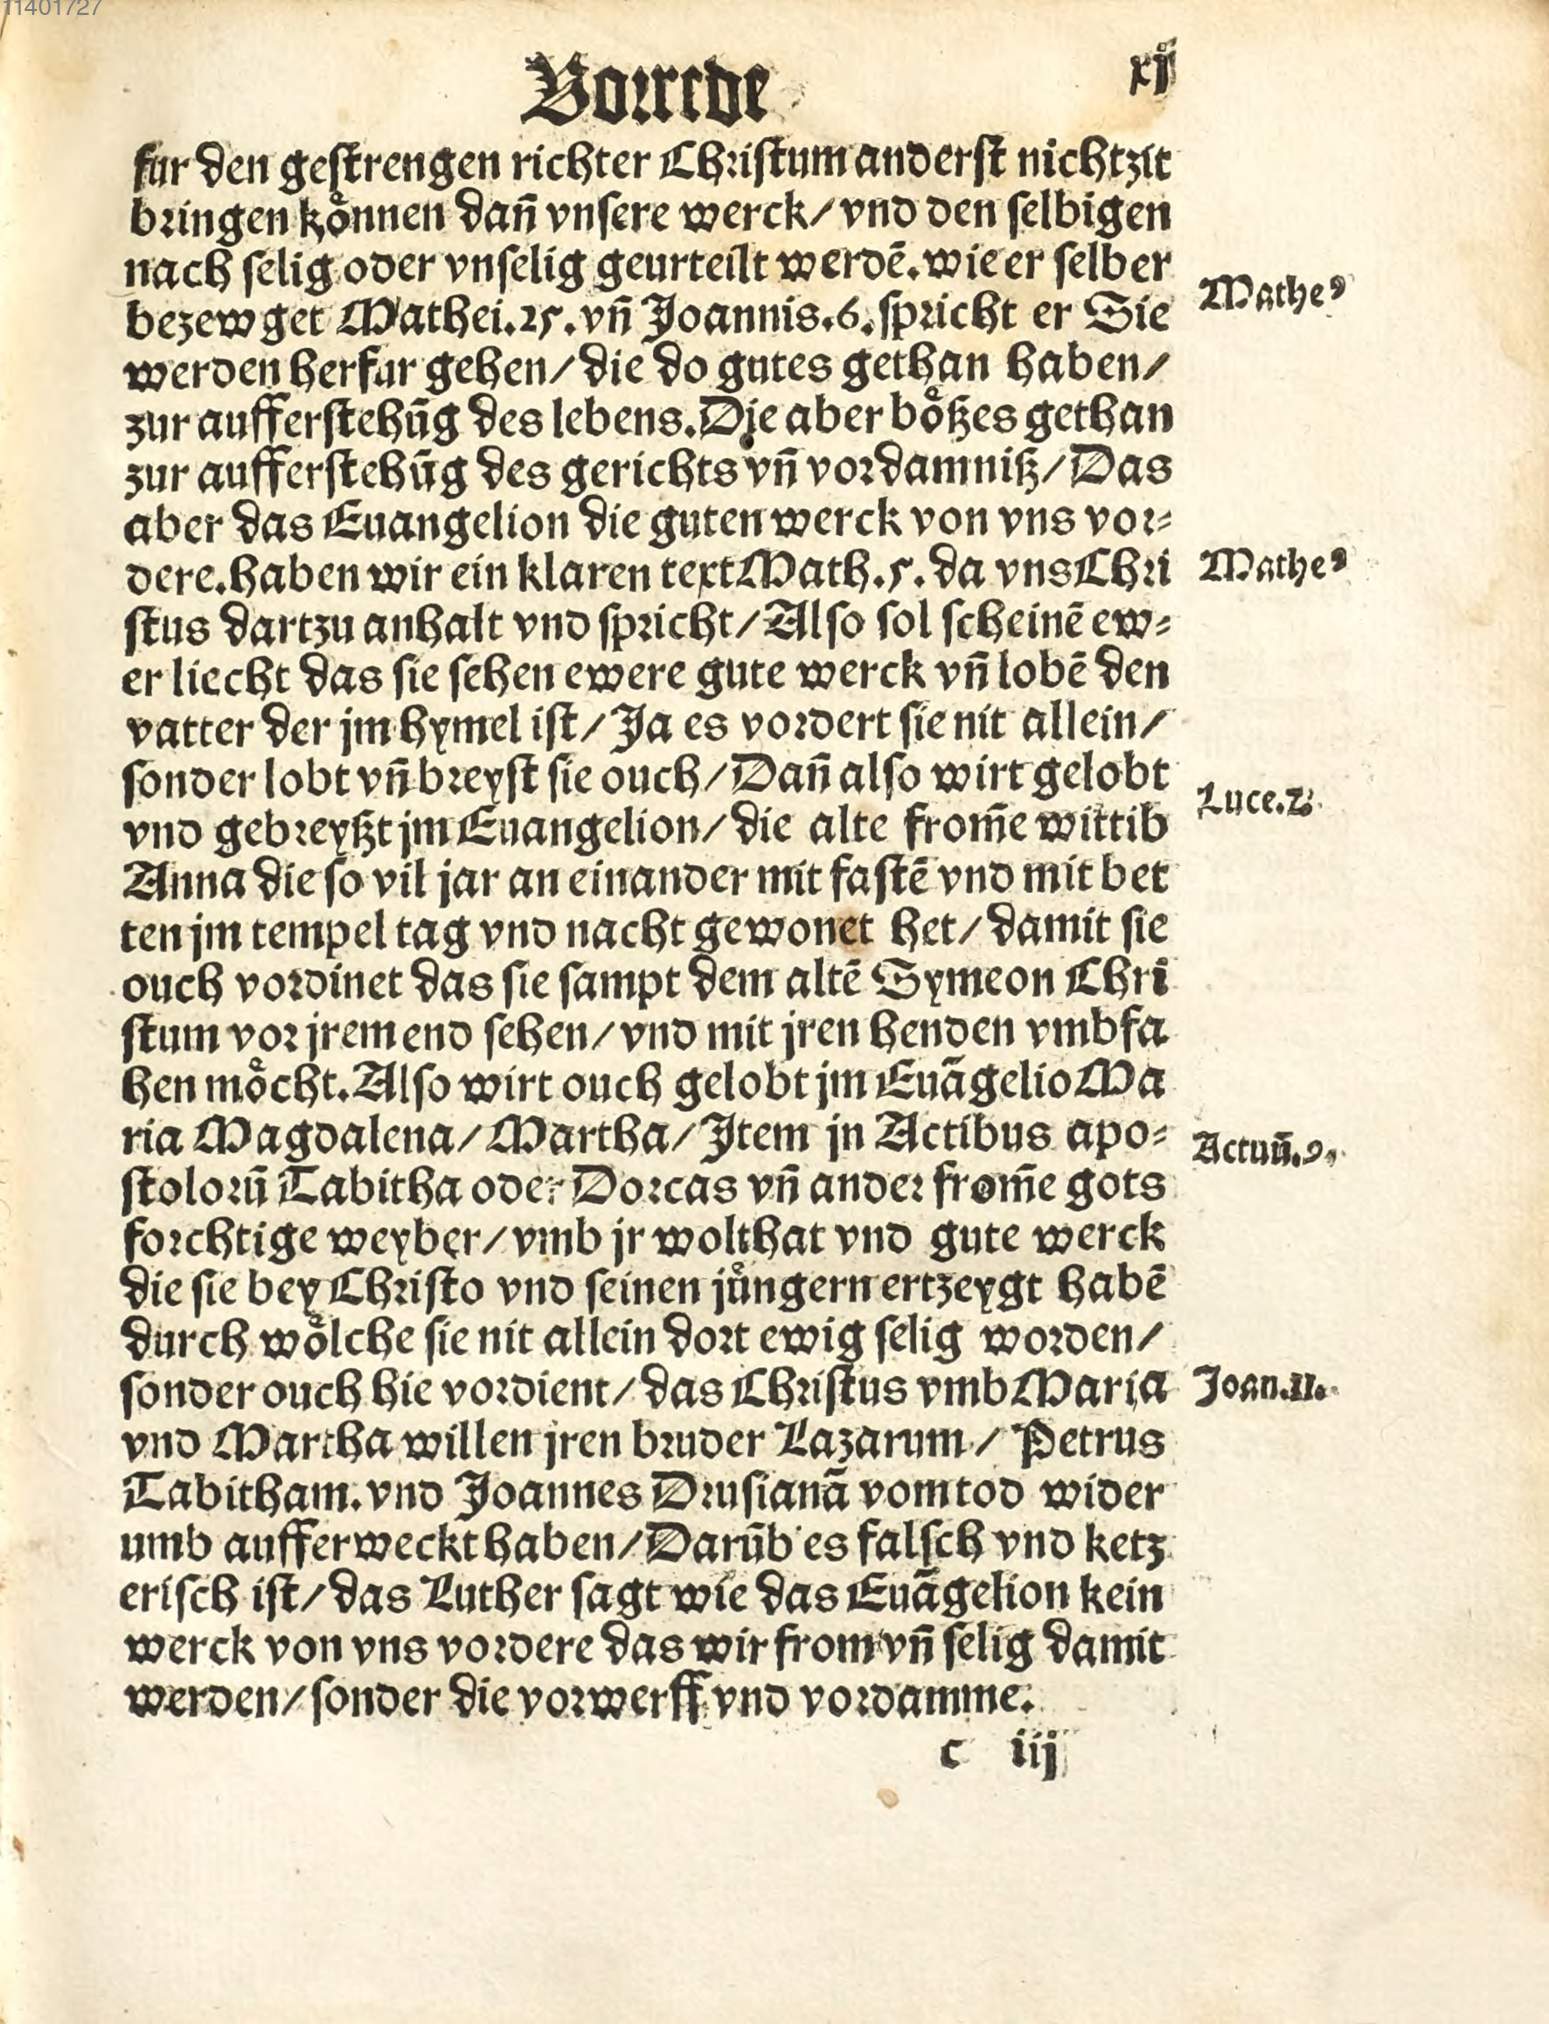 11401727
Vorrede
xj
fur den gestrengen richter Christum anderst nichtzit
bringen koͤnnen dan̄ vnsere werck/ vnd den selbigen
nach selig oder vnselig geurteilt werdē. wie er selber
bezewget Mathei. 25. vn̄ Joannis. 6. spricht er Sie
Mathe⁹
werden herfur gehen/ die do gutes gethan haben/
zur aufferstehūg des lebens. Die aber boͤßes gethan
zur aufferstehūg des gerichts vn̄ vordamniß/ Das
aber das Euangelion die guten werck von vns vor⸗
dere. haben wir ein klaren text Math. 5. da vns Chri
Mathe⁹
stus dartzu anhalt vnd spricht/ Also sol scheinē ew⸗
er liecht das sie sehen ewere gute werck vn̄ lobē den
vatter der jm hymel ist/ Ja es vordert sie nit allein/
sonder lobt vn̄ breyst sie ouch/ Dan̄ also wirt gelobt
Luce. 2.
vnd gebreyßt jm Euangelion/ die alte from̄e wittib
Anna die so vil jar an einander mit fastē vnd mit bet
ten jm tempel tag vnd nacht gewonet het/ damit sie
ouch vordinet das sie sampt dem altē Symeon Chri
stum vor jrem end sehen/ vnd mit jren henden vmbfa
hen moͤcht. Also wirt ouch gelobt jm Euāgelio Ma
ria Magdalena/ Martha/ Item jn Actibus apo⸗
Actuū. 9.
stolorū Tabitha oder Dorcas vn̄ ander from̄e gots
forchtige weyber/ vmb jr wolthat vnd gute werck
die sie bey Christo vnd seinen juͤngern ertzeygt habē
durch woͤlche sie nit allein dort ewig selig worden/
sonder ouch hie vordient/ das Christus vmb Maria
Joan. 11.
vnd Martha willen jren bruder Lazarum/ Petrus
Tabitham. vnd Joannes Drusianā vom tod wider
umb aufferweckt haben/ Darūb es falsch vnd ketz
erisch ist/ das Luther sagt wie das Euāgelion kein
werck von vns vordere das wir from vn̄ selig damit
werden/ sonder die vorwerff vnd vordamme.
c iij